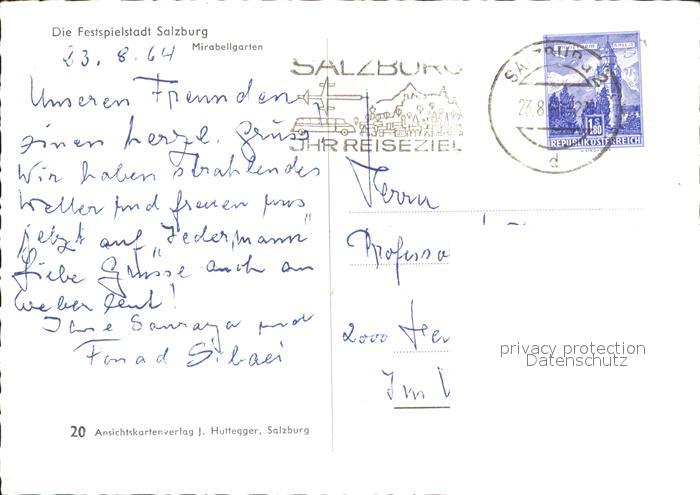 Die Festspielstadt Salzburg
Mirabellgarten
23. 8. 64
Unseren Freunden
einen herzl. Gruss
Wir haben strahlendes
Wetter und freuen uns
jetzt auf "Jedermann"
Liebe Grüsse auch an
Fouad Sibaei
20 Ansichtskartenverlag J. Huttegger, Salzburg
SALZBURG
IHR REISEZIEL
SALZBURG 2
23.8
d
1 S 80
REPUBLIK ÖSTERREICH
Herrn
Professo
2000
Im
privacy protection
Datenschutz